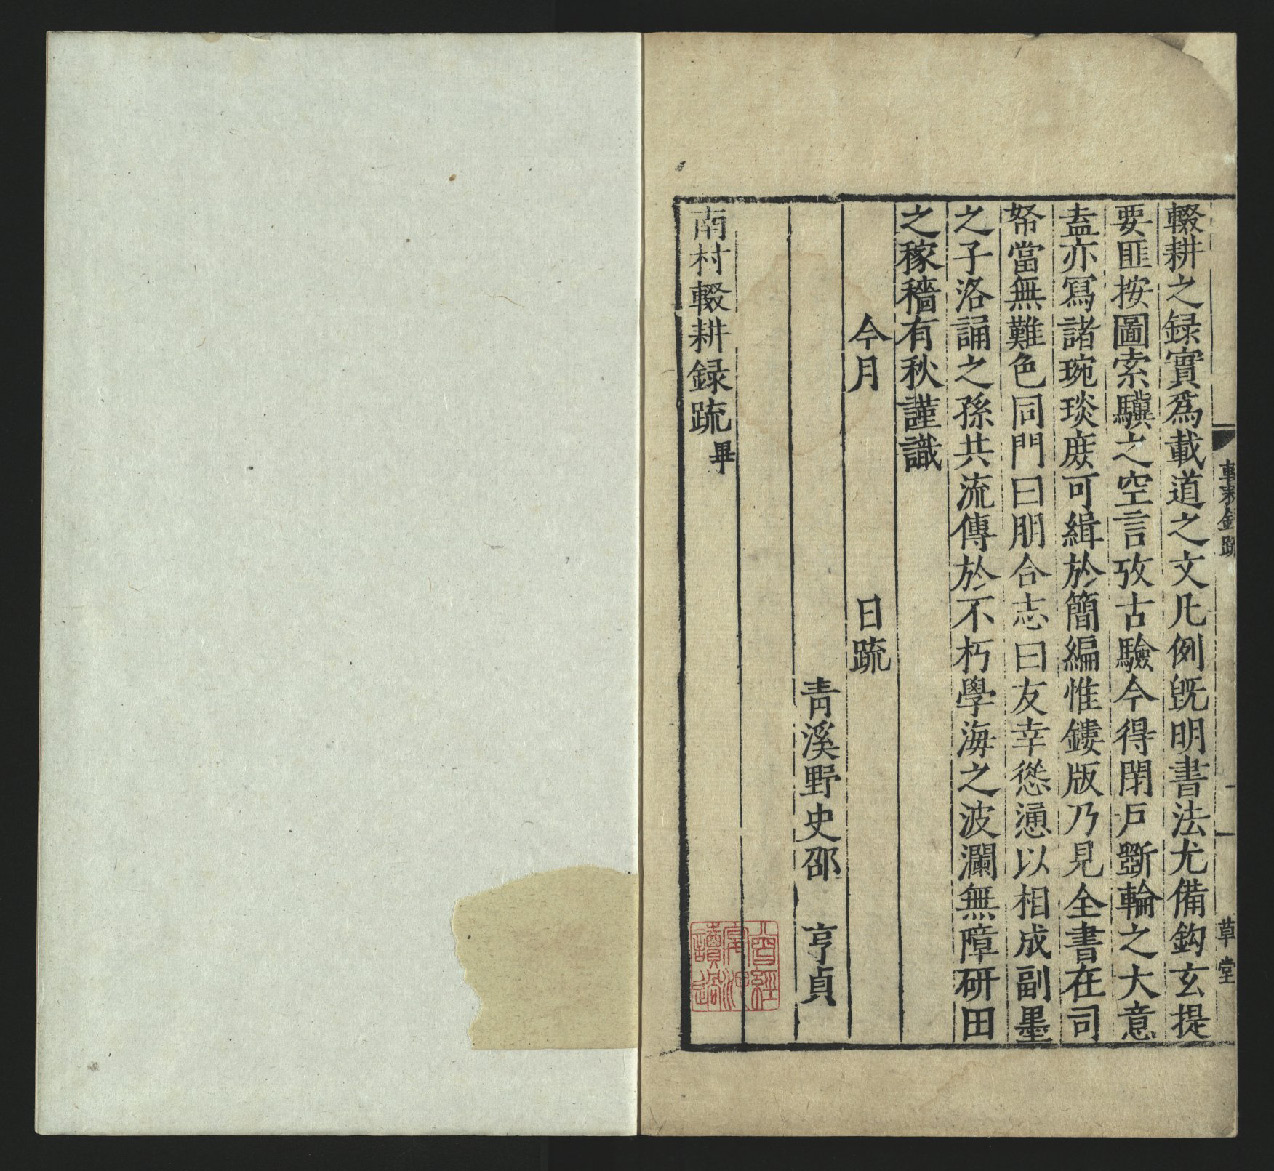 輟耕錄疏
一
草堂
輟耕之録實爲載道之文凡例旣明書法尤備鈎玄提
要匪按圖索驥之空言攷古驗今得閉戸斵輪之大意
盍亦寫諸琬琰庻可緝於簡編惟鏤版乃見全書在司
帑當無難色同門曰朋合志曰友幸慫慂以相成副墨
之子洛誦之孫共流傳於不朽學海之波瀾無障研田
之稼穡有秋謹識
今月　日疏
青溪野史邵　亨貞
南村輟耕録疏畢